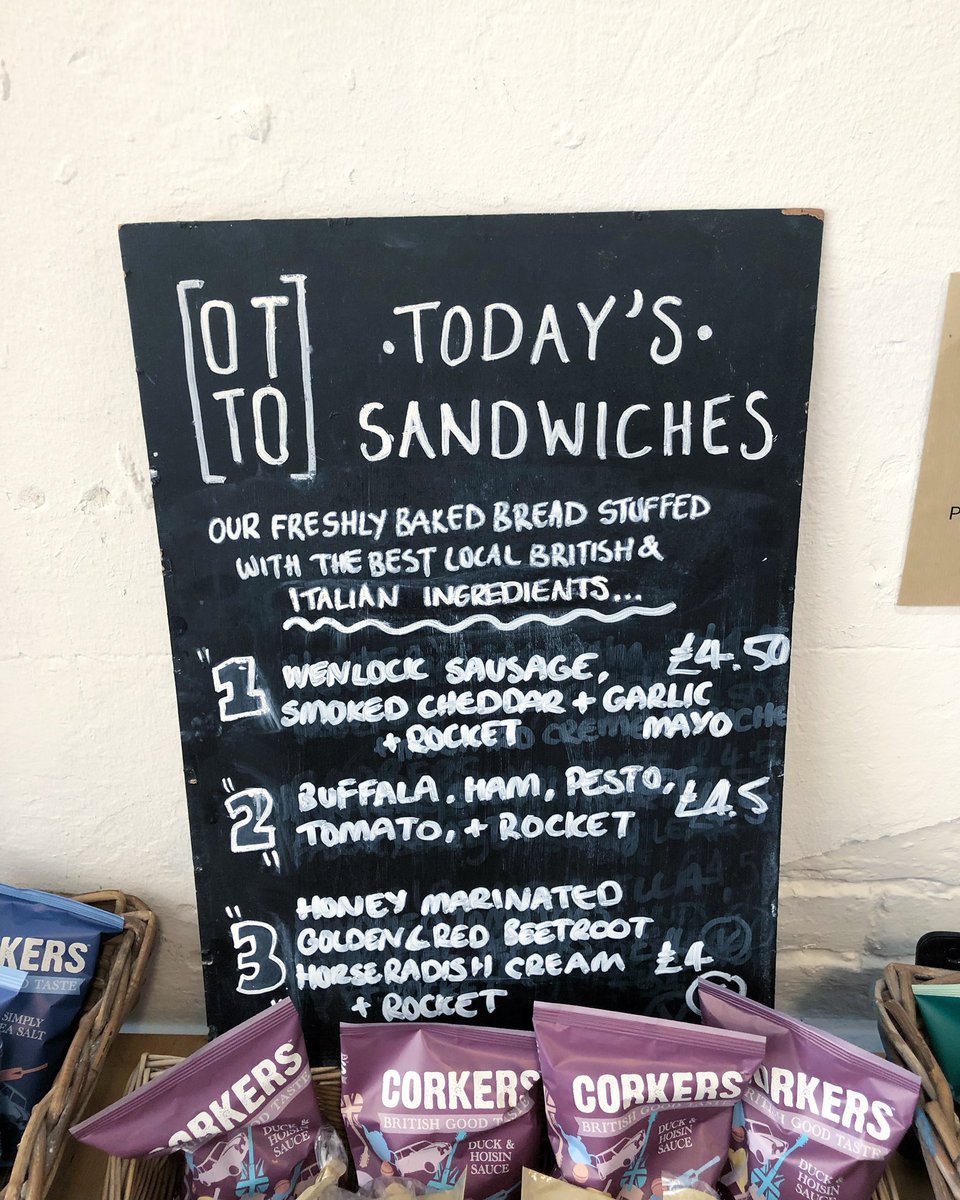 OT
TO
·TODAY'S·
SANDWICHES
OUR FRESHLY BAKED BREAD STUFFED
WITH THE BEST LOCAL BRITISH &
ITALIAN INGREDIENTS...
"1 WENLOCK SAUSAGE, £4.50
SMOKED CHEDDAR + GARLIC
+ ROCKET MAYO
"2" BUFFALA, HAM, PESTO, £4.5
TOMATO, + ROCKET
"3 HONEY MARINATED
GOLDEN & RED BEETROOT
HORSERADISH CREAM £4
+ ROCKET
KERS
D TASTE
SIMPLY
EA SALT
CORKERS
DUCK &
HOISIN
SAUCE
CORKERS
BRITISH GOOD TASTE
DUCK &
HOISIN
SAUCE
CORKERS
BRITISH GOOD TASTE
DUCK &
HOISIN
SAUCE
ORKERS
GOOD TASTE
DUCK &
HOISIN
SAUCE
P